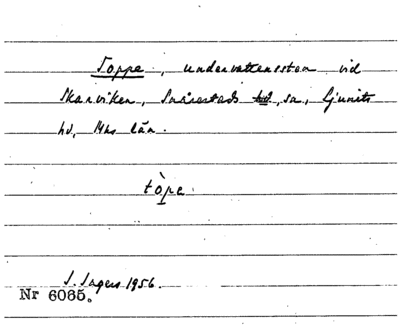 Toppe, undervattenssten vid
Skarviken, Snårestads hd, sn, Ljunits
hd, Mhs län.
tòpe
S. Ingers 1956.
Nr 6065.